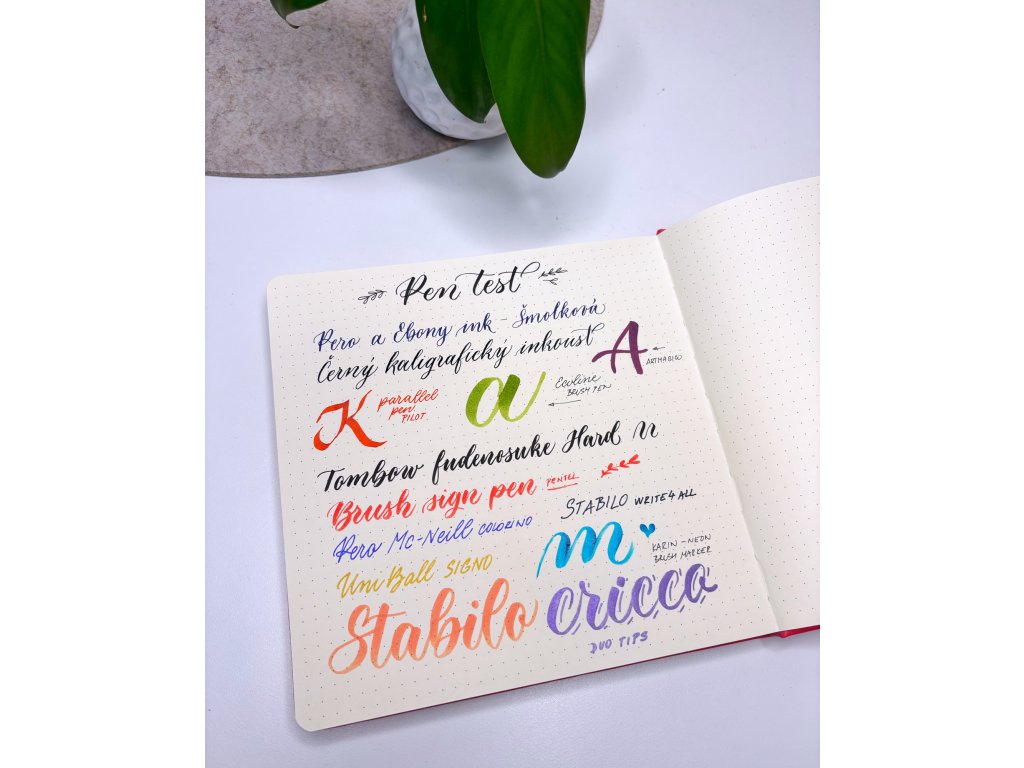 Pen test
Pero a Ebony ink - Šmolková
Černý kaligrafický inkoust
A
ARTMAGICO
K
parallel
pen
PILOT
a
Ecoline
BRUSH PEN
Tombow fudenosuke Hard
Brush sign pen PENTEL
STABILO WRITE4ALL
Pero Mc-Neill COLORINO
m
KARIN - NEON
BRUSH MARKER
UniBall SIGNO
Stabilo
cricco
DUO TIPS